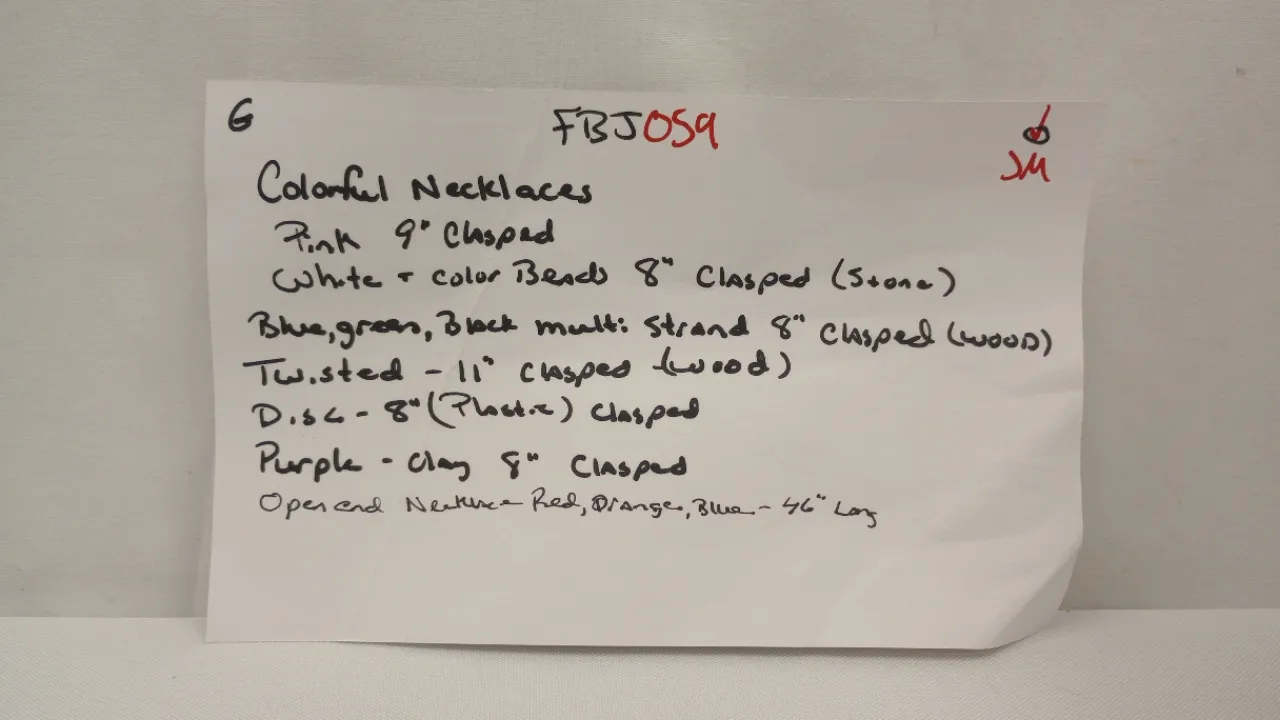 G FBJ059
JM
Colorful Necklaces
Pink 9" Clasped
White + color Beads 8" Clasped (Stone)
Blue, green, Black multi Strand 8" Clasped (WOOD)
Twisted - 11" Clasped (wood)
Disc - 8" (Plastic) Clasped
Purple - Clay 8" Clasped
Open end Necklace Red, Orange, Blue - 46" Long